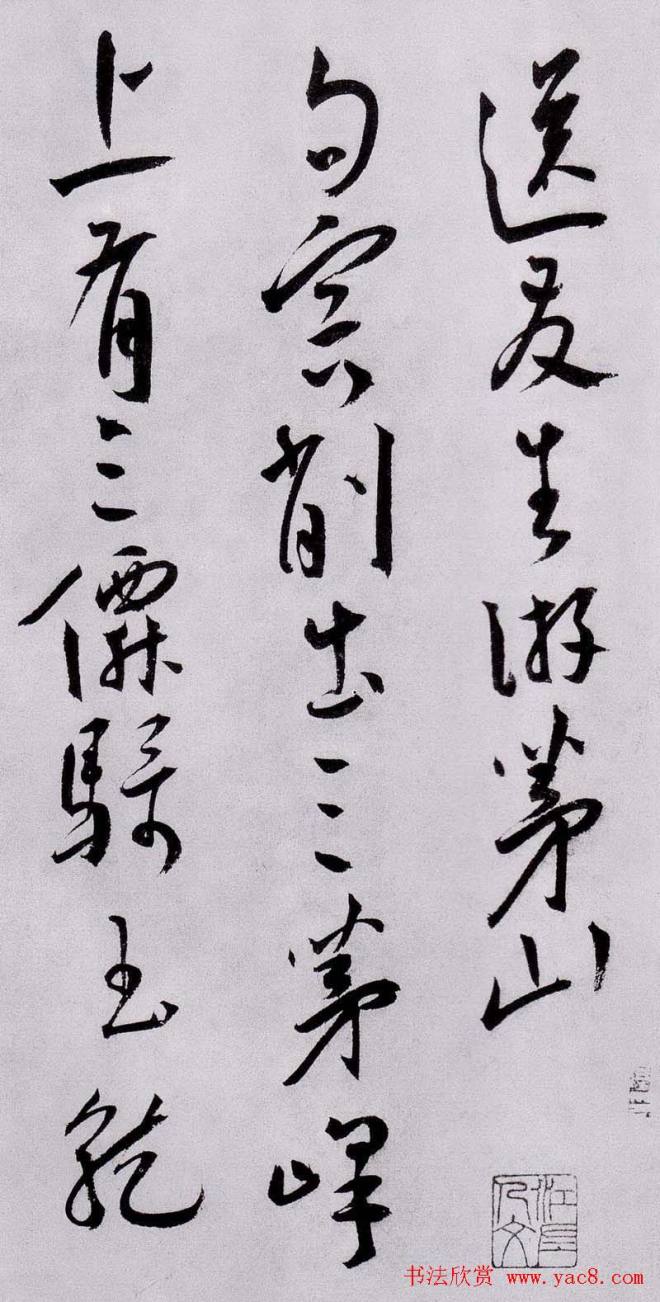 送友生游茅山
句容削出三茅峰
上有三僊騎玉龍
书法欣赏 www.yac8.com